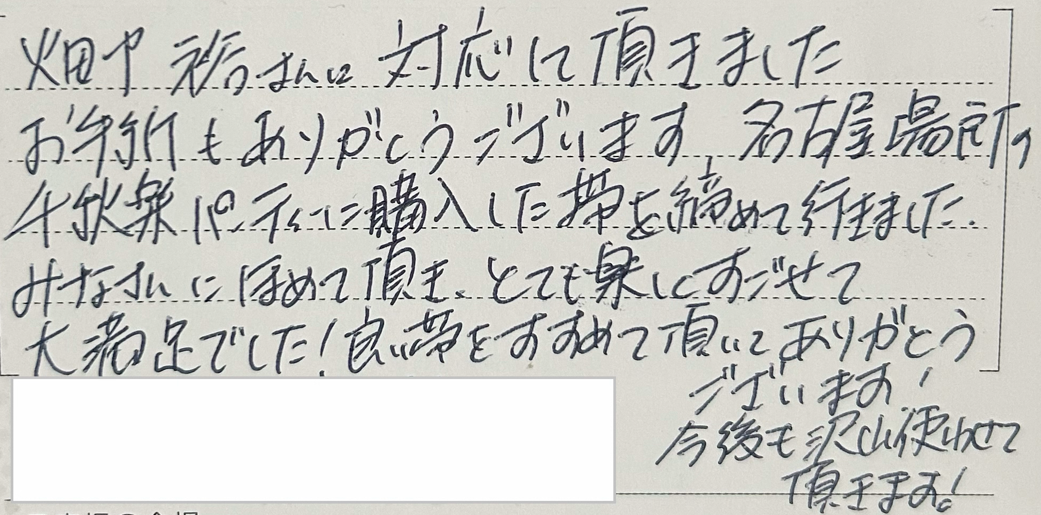 畑中 さんに 対応して頂きました
お手紙もありがとうございます、名古屋場所の
千秋楽パーティーに購入した帯を締めて行きました.
みなさんにほめて頂き、とても楽しくすごせて
大満足でした!良い帯をすすめて頂いてありがとう
ございます!
今後も沢山使わせて
頂きます!